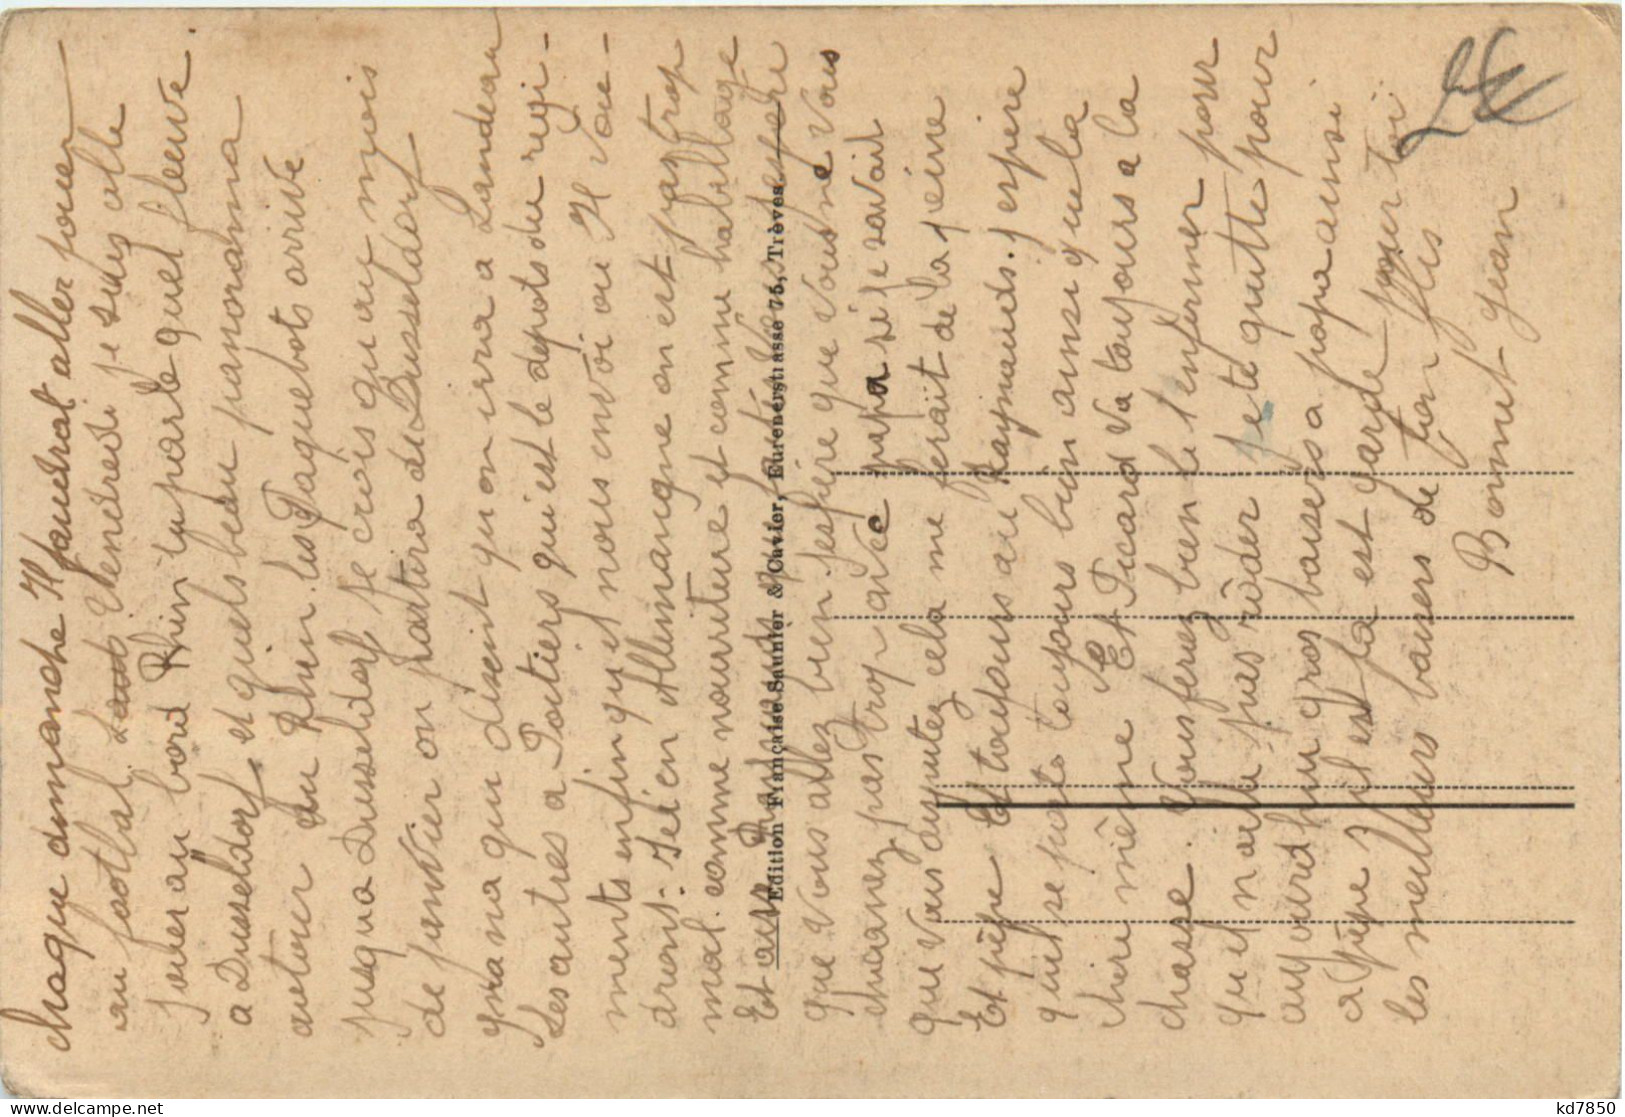 chaque dimanche Il faudrat aller jouer
au footbal. Vendredi je suis alle
jouer au bord Rhin tu parle quel fleuve.
a Dusseldorf et quels beau panorama
autour du Rhin les Paquebots arrive
jusqua Dusseldorf je crois qu au mois
de janvier on partira de Dusseldorf
yna na qui disent qu on irra a Landeau
les autres a Poitiers qui est le depots du regi-
ments enfin qu il nous envoi ou Il vou-
drons. Ici en Allemangne on est pas trop
mal comme nourriture et comme habillage
Et
que vous allez bien. j espère que vous ne vous
chicanez pas trop avec papa si je savait
que vous ayuntez cela me ferait de la peine
Et pépe Et toujours au Raymonds. j espire
qu il se porte toujours bien ainsi que la
chere mième Et Picard va toujours a la
chasse. vous ferez bien de l enfermer pour
qu il n aille pas rôder je te quitte pour
aujourdhui gros baisers a papa ainsi
a pépe s il est la est garde pour toi
les meilleurs baisers de ton fils
Bonnut Jean
Edition Française Saunier & Cavier, Eurenerstrasse 75, Trèves
kd7850